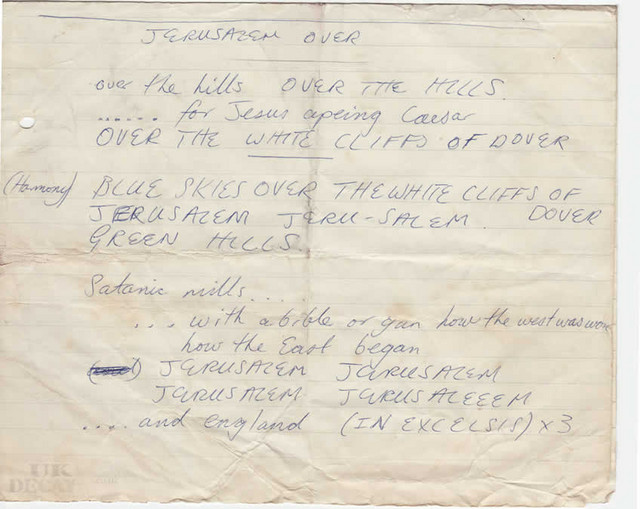 JERUSALEM OVER
over the hills OVER THE HILLS.
...... for Jesus apeing Caesar
OVER THE WHITE CLIFFS OF DOVER
(Hamony) BLUE SKIES OVER THE WHITE CLIFFS OF
JERUSALEM JERU-SALEM. DOVER
GREEN HILLS.
Satanic mills....
... with a bible or gun how the west was won
how the East began
JERUSALEM JERUSALEM
JERUSALEM JERUSALEEEM
.... and england (IN EXCELSIS) x3
UK
DECAY